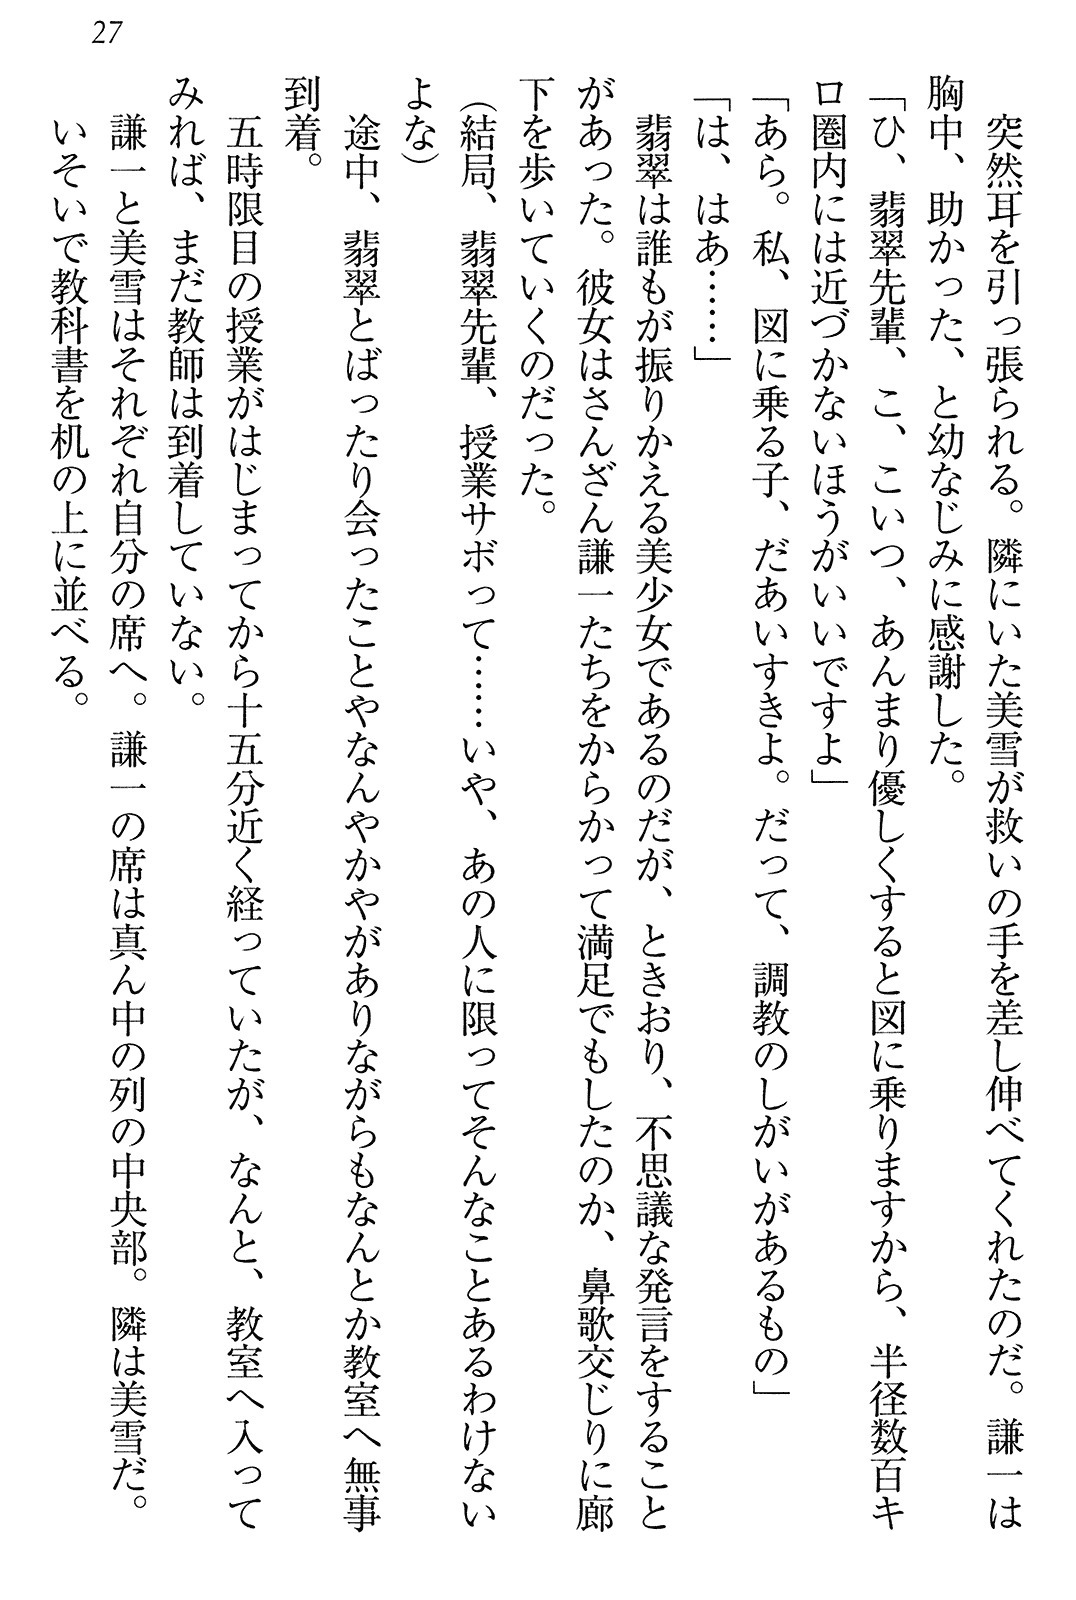 27
突然耳を引っ張られる。隣にいた美雪が救いの手を差し伸べてくれたのだ。謙一は
胸中、助かった、と幼なじみに感謝した。
「ひ、翡翠先輩、こ、こいつ、あんまり優しくすると図に乗りますから、半径数百キ
ロ圏内には近づかないほうがいいですよ」
「あら。私、図に乗る子、だあいすきよ。だって、調教のしがいがあるもの」
「は、はあ……」
翡翠は誰もが振りかえる美少女であるのだが、ときおり、不思議な発言をすること
があった。彼女はさんざん謙一たちをからかって満足でもしたのか、鼻歌交じりに廊
下を歩いていくのだった。
（結局、翡翠先輩、授業サボって……いや、あの人に限ってそんなことあるわけない
よな）
途中、翡翠とばったり会ったことやなんやかやがありながらもなんとか教室へ無事
到着。
五時限目の授業がはじまってから十五分近く経っていたが、なんと、教室へ入って
みれば、まだ教師は到着していない。
謙一と美雪はそれぞれ自分の席へ。謙一の席は真ん中の列の中央部。隣は美雪だ。
いそいで教科書を机の上に並べる。